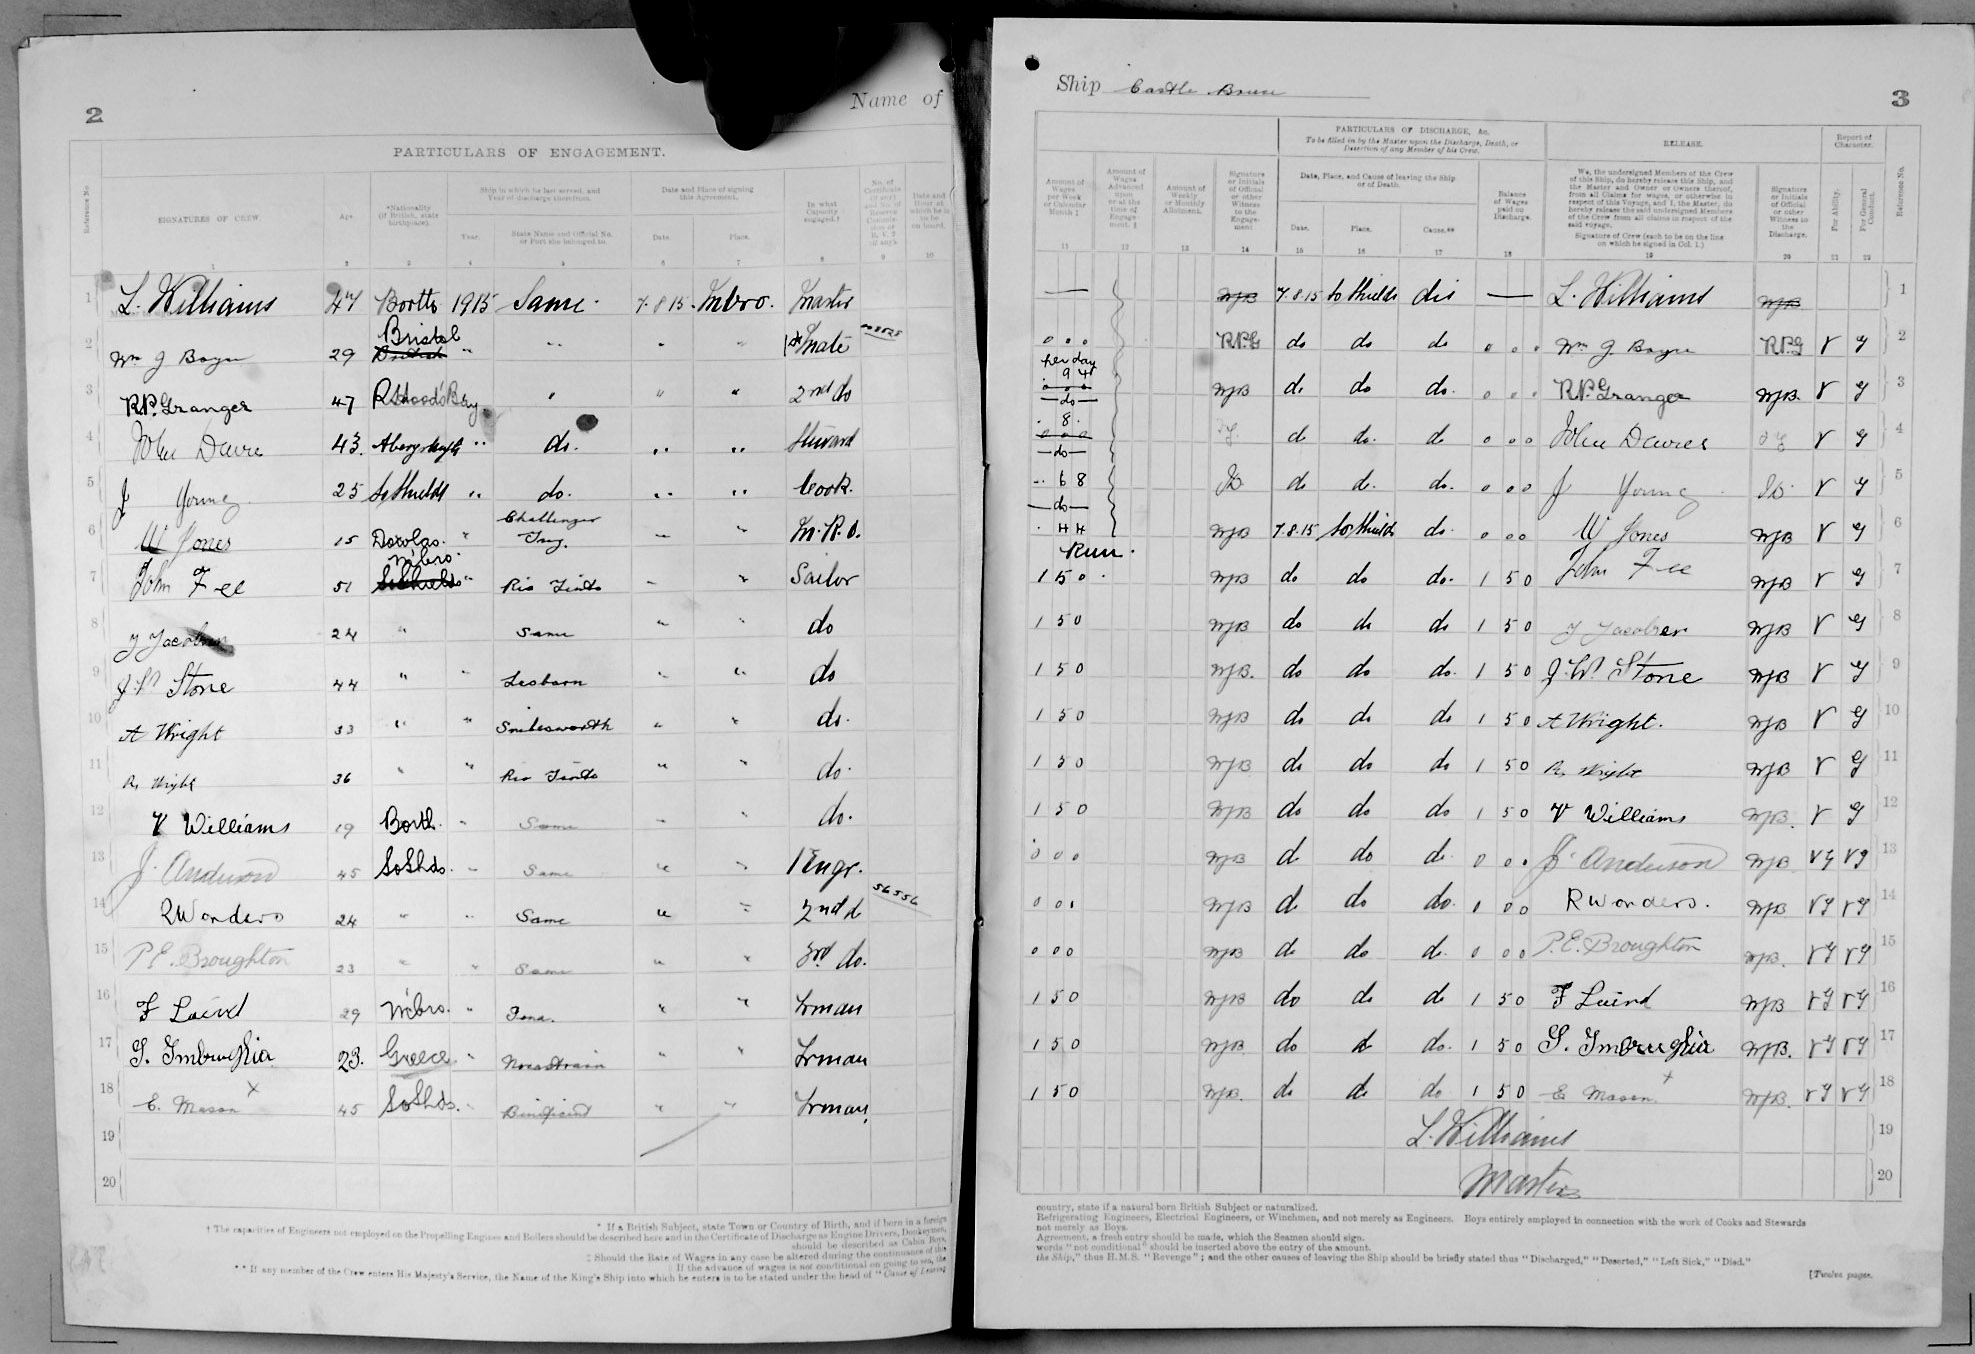 2
Name of
PARTICULARS OF ENGAGEMENT.
Reference No.
SIGNATURES OF CREW.
Age
*Nationality (if British, state birthplace).
Ship in which he last served, and Year of discharge therefrom.
Year.
State Name and Official No. or Port she belonged to.
Date and Place of signing this Agreement.
Date.
Place.
In what Capacity engaged.†
Date and Hour at which he is to be on board.
1 2 3 4 5 6 7 8 9 10
1 L. Williams 47 Borth 1915 Same. 7.8.15. Mbro. Master
2 Wm J Bayne 29 Bristol " " " " 1st Mate
3 R.P. Granger 47 R Hoods Bay " " " 2nd do
4 John Davies 43. Aberystwyth " do. " " Steward
5 J Young 25 So Shields " do. " " Cook.
6 W Jones 15 " Challenger " " M.R.O.
7 John Fee 51 M'bro. " Rio Tinto " " Sailor
8 J Jacobsen 24 " Same " " do
9 J. W. Stone 44 " " " " do
10 A Wright 33 " " " " do.
11 R Wright 36 " " Rio Tinto " " do.
12 V Williams 19 Borth. " Same " " do.
13 J. Anderson 45 So Shds. " Same " " 1 Engr.
14 R Wonders 24 " " Same " " 2nd d 56556
15 P.E. Broughton 23 " " Same " " 3rd do.
16 F Laird 29 M'bro. " Iona. " " Frman
17 G. Imbruglia 23. Greece " " " Frman
18 E. Mason x 45 So Shds. " " " Frman
19
20
* If a British Subject, state Town or Country of Birth, and if born in a foreign
† The capacities of Engineers not employed on the Propelling Engines and Boilers should be described here and in the Certificate of Discharge as Engine Drivers, Donkeymen,
should be described as Cabin Boys,
‡ Should the Rate of Wages in any case be altered during the continuance of this
‖ If the advance of wages is not conditional on going to sea, the
** If any member of the Crew enters His Majesty's Service, the Name of the King's Ship into which he enters is to be stated under the head of "Cause of Leaving
Ship Castle Bruce
3
PARTICULARS OF DISCHARGE, &c.
To be filled in by the Master upon the Discharge, Death, or Desertion of any Member of his Crew.
RELEASE.
Report of Character.
Amount of Wages per Week or Calendar Month ‡
Amount of Wages Advanced upon or at the time of Engagement. ‖
Amount of Weekly or Monthly Allotment.
Signature or Initials of Official or other Witness to the Engagement
Date, Place, and Cause of leaving the Ship or of Death.
Date.
Place.
Cause.**
Balance of Wages paid on Discharge.
We, the undersigned Members of the Crew of this Ship, do hereby release this Ship, and the Master and Owner or Owners thereof, from all Claims for wages, or otherwise, in respect of this Voyage, and I, the Master, do hereby release the said undersigned Members of the Crew from all claims in respect of the said voyage.
Signature of Crew (each to be on the line on which he signed in Col. 1.)
Signature or Initials of Official or other Witness to the Discharge.
For Ability.
For General Conduct.
Reference No.
11 12 13 14 15 16 17 18 19 20 21 22
— WJB 7.8.15 So Shields dis — L. Williams WJB 1
0 0 0 R.P.G do do do 0 0 0 Wm J. Bayne R.P.G V G 2
per day
9 4
—do— WJB do do do. 0 0 0 R.P. Granger WJB. V G 3
. 8 .
—do— do do. do 0 0 0 John Davies V G 4
-. 6 8
—do— JD. do do. do. 0 0 0 J Young JD. V G 5
. 4 4 WJB 7.8.15 So Shields do. 0 0 0 W Jones WJB V G 6
Run.
1 5 0 . WJB do do do. 1 5 0 John Fee WJB V G 7
1 5 0 WJB do do do 1 5 0 J Jacobsen WJB V G 8
1 5 0 WJB. do do do. 1 5 0 J. W. Stone WJB V G 9
1 5 0 WJB do do do 1 5 0 A Wright. WJB V G 10
1 5 0 WJB do do do 1 5 0 R Wright WJB V G 11
1 5 0 WJB do do do 1 5 0 V Williams WJB. V G 12
0 0 0 WJB do do do. 0 0 0 J. Anderson WJB VG VG 13
0 0 0 WJB do do do. 0 0 0 R Wonders. WJB VG VG 14
0 0 0 WJB do do do. 0 0 0 P.E. Broughton WJB. VG VG 15
1 5 0 WJB do do do 1 5 0 F Laird WJB VG VG 16
1 5 0 WJB. do do do. 1 5 0 G. Imbruglia WJB. VG VG 17
1 5 0 WJB. do do do 1 5 0 E Mason x WJB. VG VG 18
L. Williams 19
Master 20
country, state if a natural born British Subject or naturalized.
Refrigerating Engineers, Electrical Engineers, or Winchmen, and not merely as Engineers. Boys entirely employed in connection with the work of Cooks and Stewards
not merely as Boys.
Agreement, a fresh entry should be made, which the Seamen should sign.
words "not conditional" should be inserted above the entry of the amount.
the Ship," thus H.M.S. "Revenge"; and the other causes of leaving the Ship should be briefly stated thus "Discharged," "Deserted," "Left Sick," "Died."
[Twelve pages.